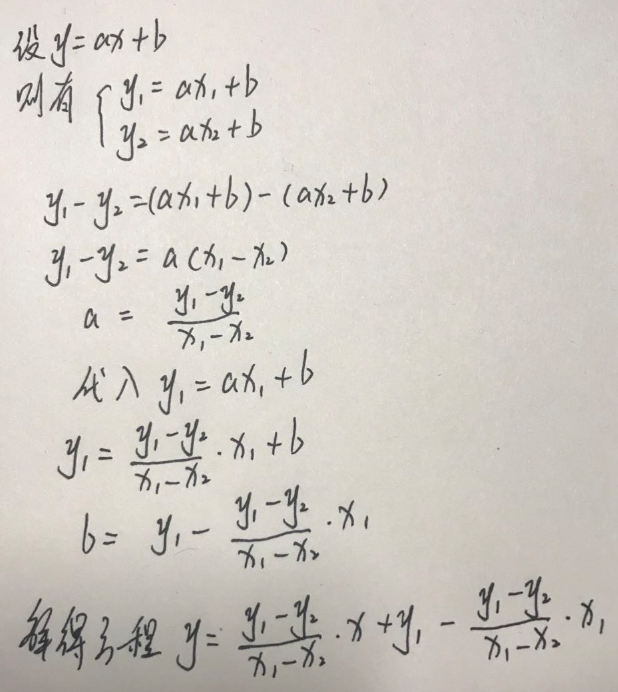 设 y = ax + b
则有 { y₁ = ax₁ + b
y₂ = ax₂ + b
y₁ - y₂ = (ax₁ + b) - (ax₂ + b)
y₁ - y₂ = a(x₁ - x₂)
a = \frac{y₁ - y₂}{x₁ - x₂}
代入 y₁ = ax₁ + b
y₁ = \frac{y₁ - y₂}{x₁ - x₂} · x₁ + b
b = y₁ - \frac{y₁ - y₂}{x₁ - x₂} · x₁
解得方程 y = \frac{y₁ - y₂}{x₁ - x₂} · x + y₁ - \frac{y₁ - y₂}{x₁ - x₂} · x₁